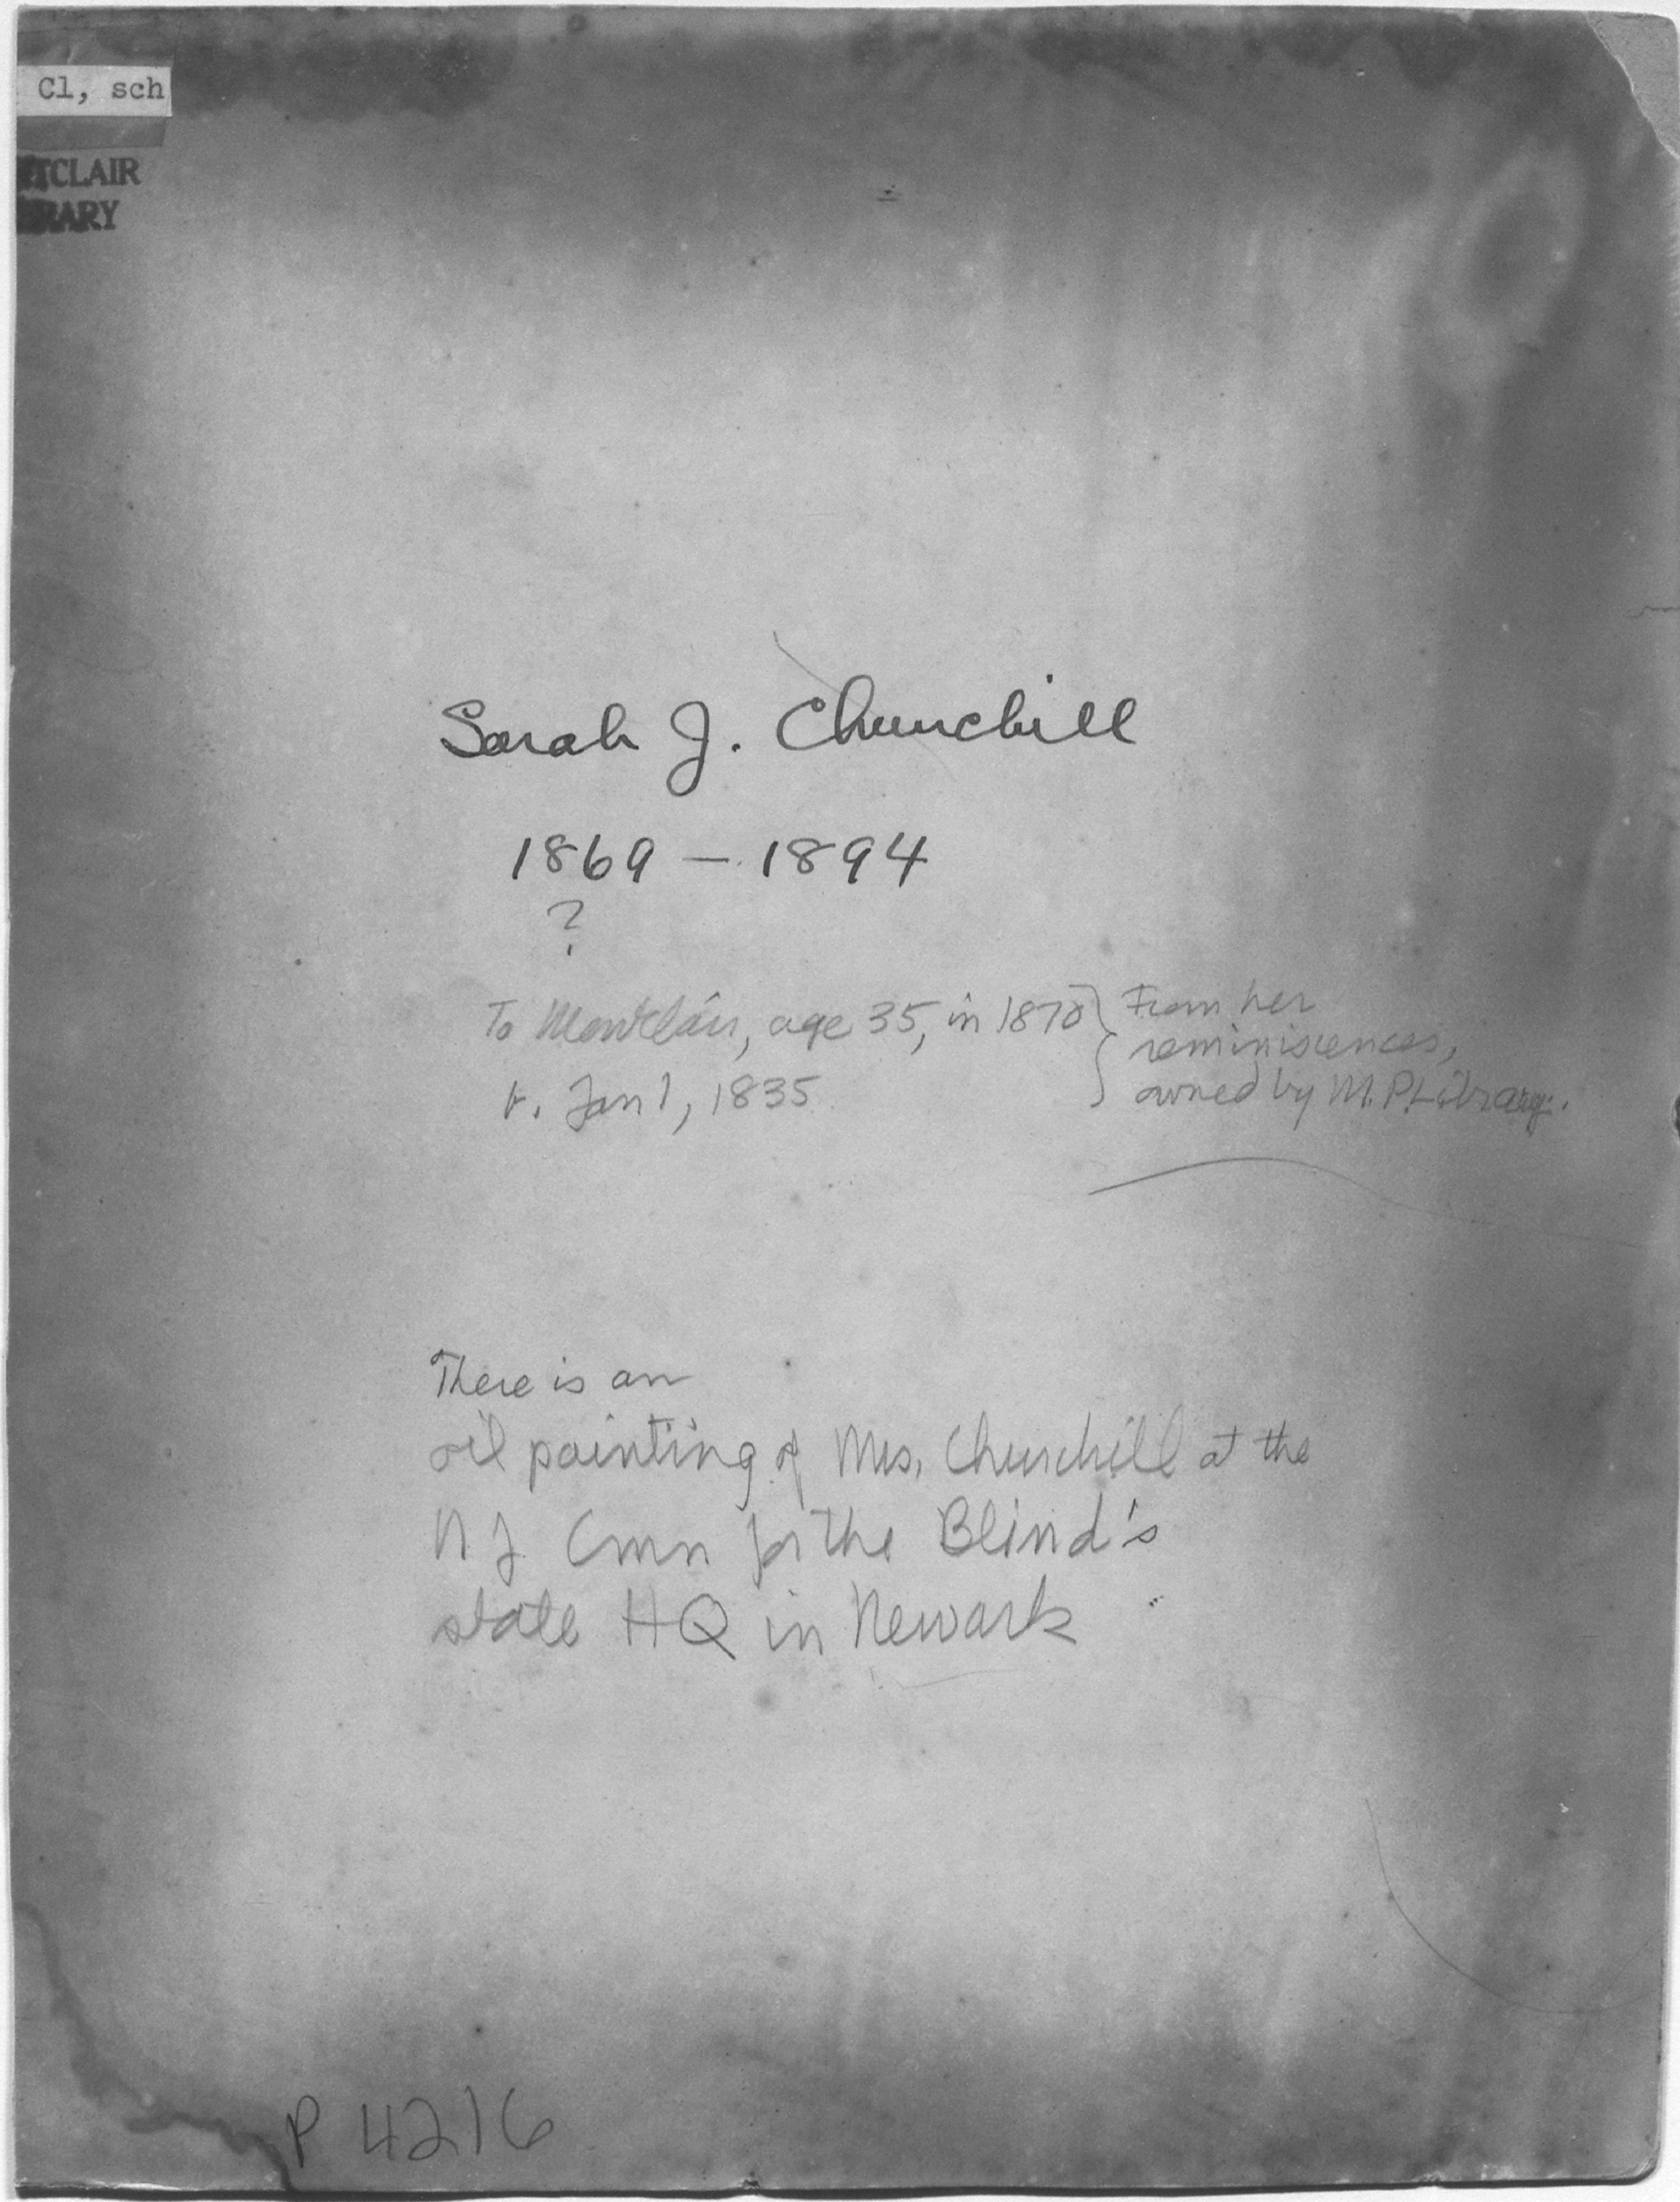 Cl, sch
TCLAIR
RARY
Sarah J. Churchill
1869 – 1894
?
To Montclair, age 35, in 1870 } From her
reminiscences,
b. Jan 1, 1835 owned by M. P. Library.
There is an
oil painting of Mrs. Churchill at the
NJ Cmn for the Blind's
state HQ in Newark
P 4216